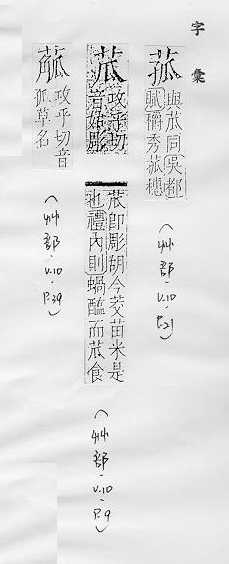 字彙
菰
與苽同吳都
賦穱秀菰穗
(艸部.V.10.P.21)
苽
攻乎切
音姑彫
苽即彫胡今茭苗米是
也禮內則蝸醢而苽食
(艸部.V.10.P.9)
攻乎切音
孤草名
(艸部.V.10.P.39)